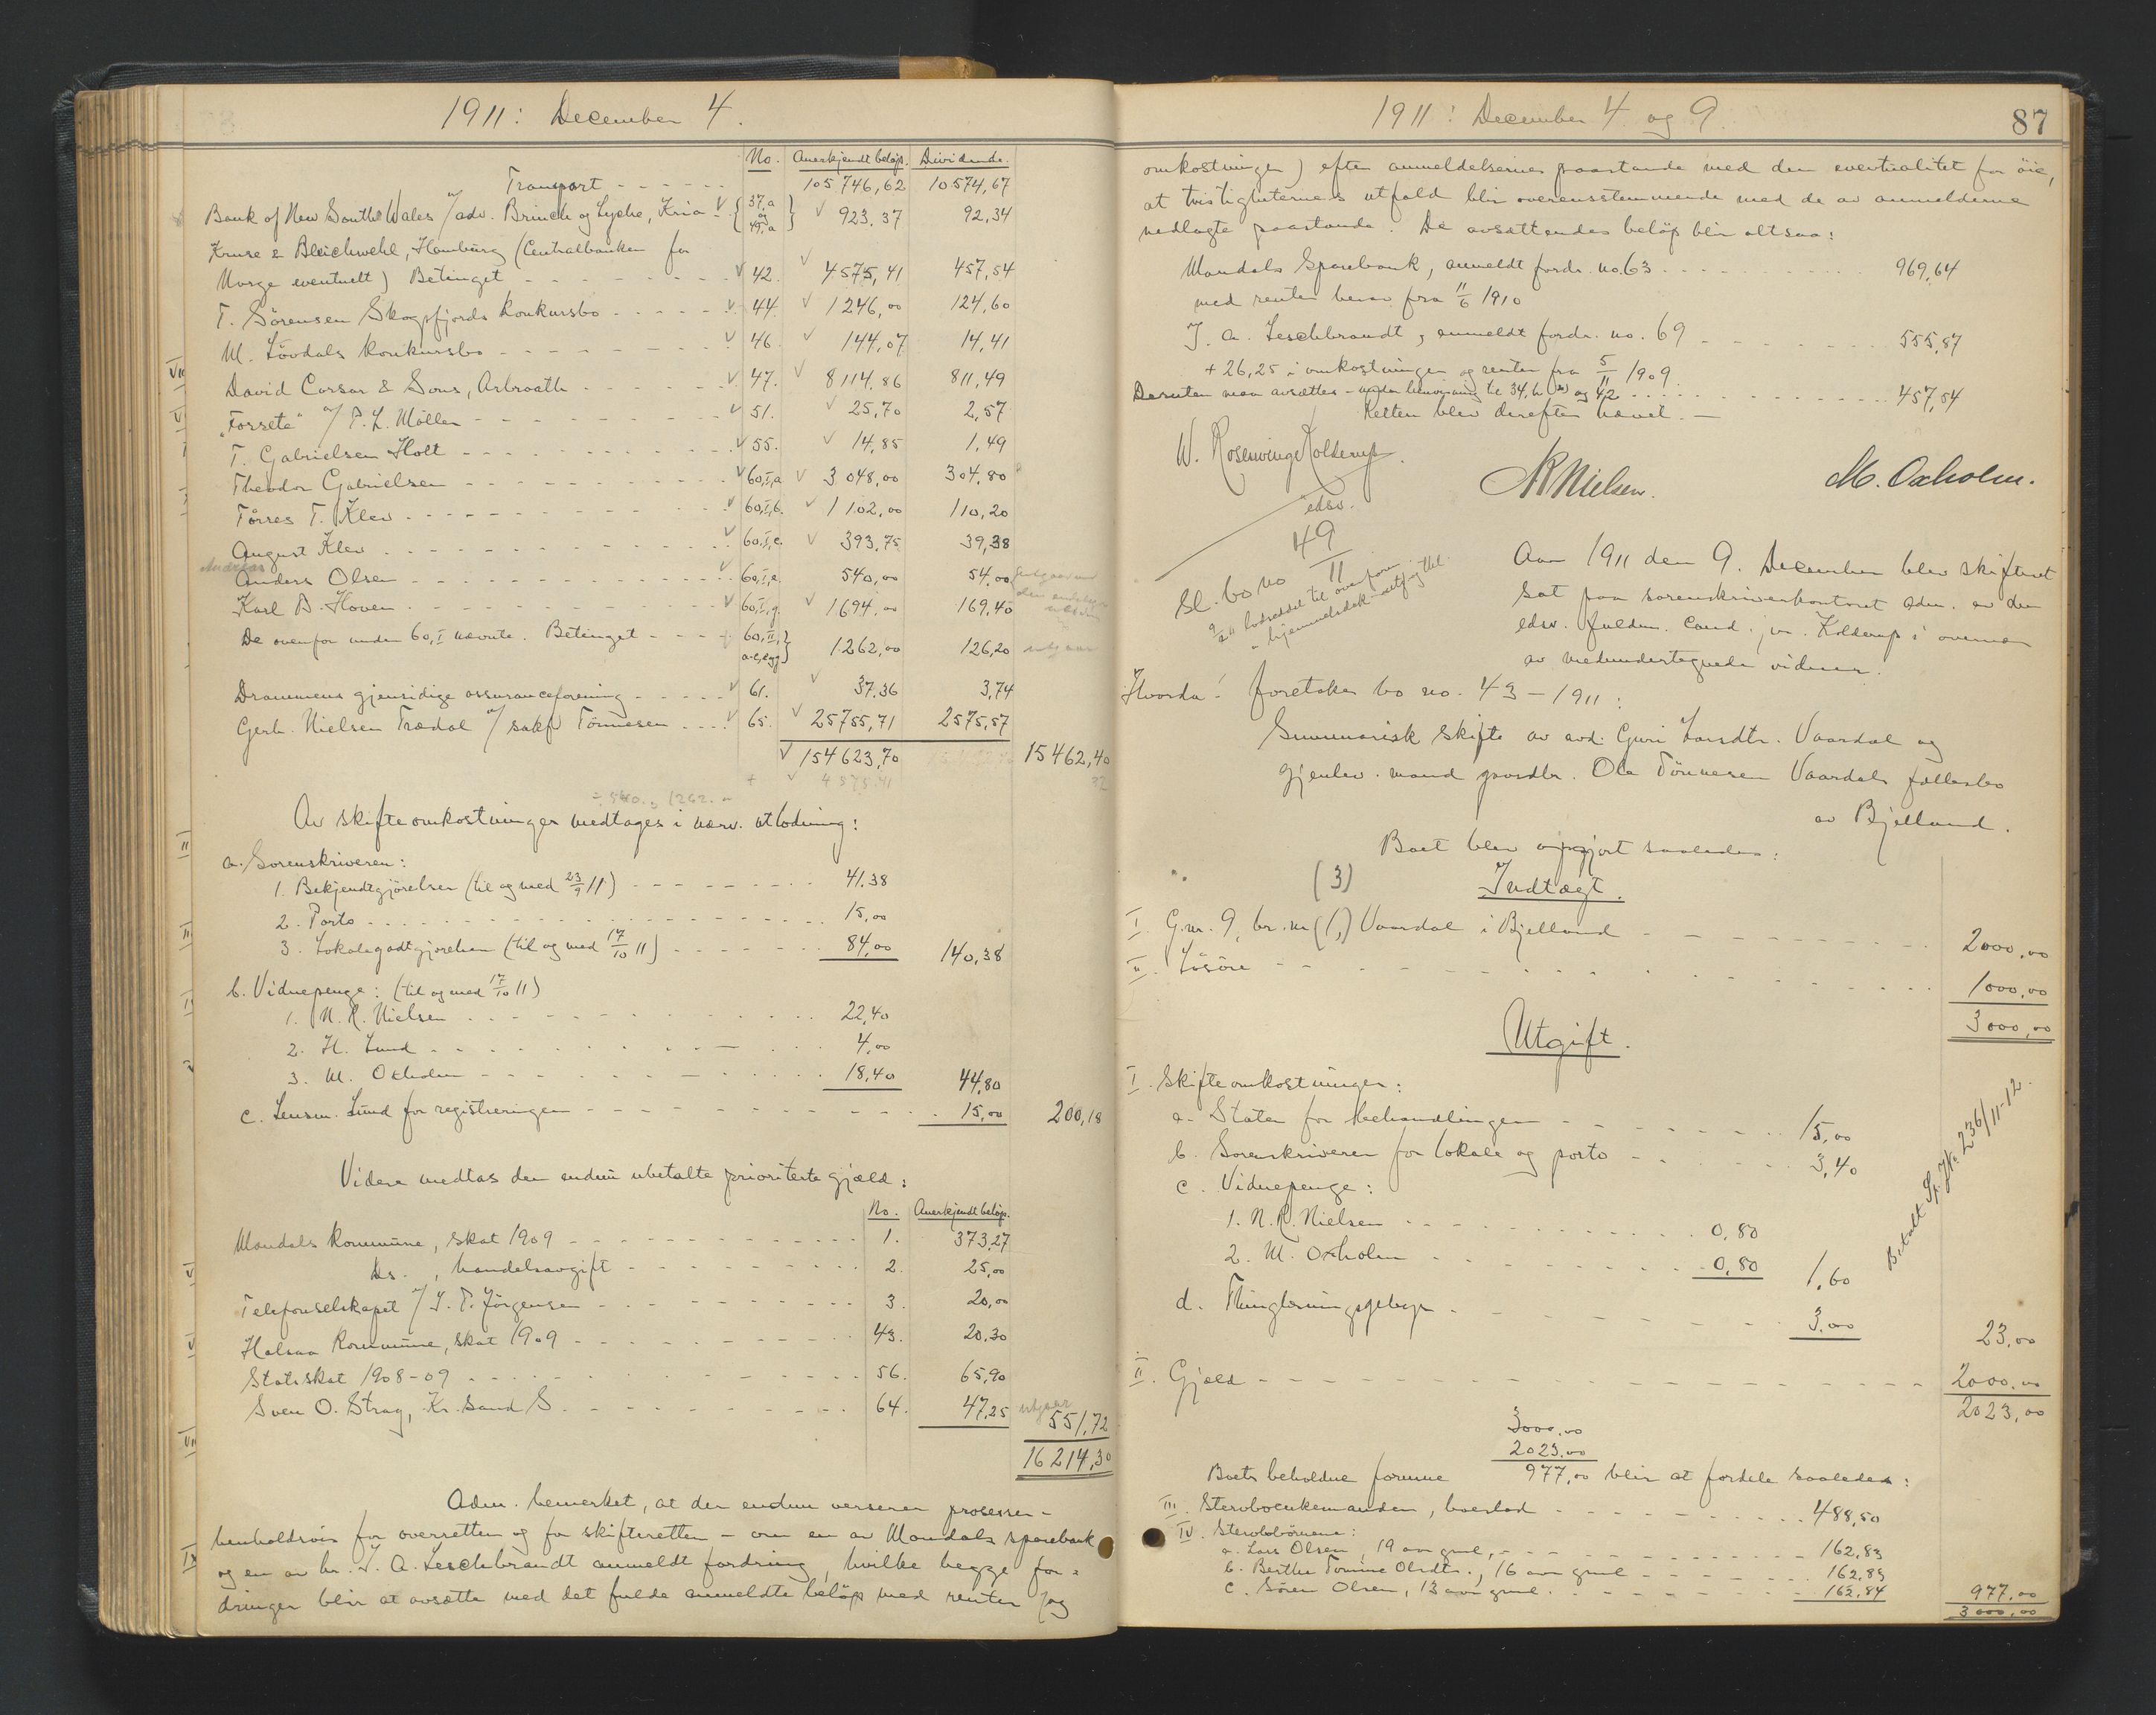 1911: December 4.
No. Anerkjendt beløp. Dividende.
Transport 105746,62 10574,67
Bank of New South Wales v/ adv. Brinch og Lyche, Kria {37,a og 45,a} 923,37 92,34
Kruse & Bleichwehl, Hamburg (Centralbanken for
Norge eventuelt) Betinget 42. 4575,41 457,54
T. Sörensen Skogsfjords konkursbo 44. 1246,00 124,60
M. Lövdals konkursbo 46. 144,07 14,41
David Corsar & Sons, Arbroath 47. 8114,86 811,49
"Forseta" v/ P. L. Möller 51. 25,70 2,57
T. Gabrielsen Holt 55. 14,85 1,49
Theodor Gabrielsen 60,I,a 3048,00 304,80
Törres T. Klev 60,I,b. 1102,00 110,20
August Klev 60,I,c. 393,75 39,38
Andreas
Anders Olsen 60,I,e. 540,00 54,00
Karl B. Hoven 60,I,g. 1694,00 169,40
De ovenfor under 60,I nævnte. Betinget 60,II, a-c, e, g 1262,00 126,20 utgaar
Drammens gjensidige assuranceforening 61. 37,36 3,74
Gerh. Nielsen Trædal v/ sakf Tönnesen 65. 25755,71 2575,57
154623,70 15462,40
+ 4575.41 32
÷ 540., 1262.-
Av skifteomkostninger medtages i nærv. utlodning:
a. Sorenskriveren:
1. Bekjendtgjörelser (til og med 23/9 11) 41.38
2. Porto 15,00
3. Lokalegodtgjörelsen (til og med 17/10 11) 84,00 140,38
b. Vidnepenge: (til og med 17/10 11)
1. N. R. Nielsen 22,40
2. H. Lund 4,00
3. M. Oxholm 18,40 44,80
c. Lensm. Lund for registreringen 15,00 200,18
Videre medtas den endnu ubetalte prioriterte gjæld:
No. Anerkjendt beløp.
Mandals kommune, skat 1909 1. 373,27
ds. , handelsavgift 2. 25,00
Telefonselskapet v/ J. T. Jörgensen 3. 20,00
Halsaa kommune, skat 1909 43. 20,30
Statsskat 1908-09 56. 65,90
Sven O. Stray, Kr.sand S. 64. 47,25 utgaar 551,72
16214,30
Adm. bemerket, at der endnu verserer prosesser -
henholdsvis for overretten og for skifteretten - om en av Mandals sparebank
og en av hr. J. A. Leschbrandt anmeldt fordring, hvilke begge for-
dringer blir at avsætte med det fulde anmeldte beløp med renter (og
1911: December 4 og 9. 87
omkostninger) efter anmeldelsernes paastande med den eventualitet for öie,
at tvistigheternes utfald blir overensstemmende med de av anmelderne
nedlagte paastande. De avsættendes beløp blir altsaa:
Mandals Sparebank, anmeldt fordr. no. 63 969,64
med renter herav fra 11/6 1910
J. A. Leschbrandt, anmeldt fordr. no. 69 555,87
+ 26,25 i omkostninger og renter fra 5/11 1909
Desuten maa avsættes - under henvisning til 34, b og 42 457,54
Retten blev derefter hævet. -
W. Rosenvinge Kolderup.
edsv.
NRNielsen. M. Oxholm.
Sl. bo no 49/11
Aar 1911 den 9. December blev skifteret
sat paa sorenskriverkontoret adm. av den
edsv. fuldm. cand. jur. Kolderup i overvær
av medundertegnede vidner.
Hvorda: foretokes bo no. 43-1911:
Summarisk skifte av avd. Guri Larsdtr. Vaardal og
gjenlev. mand gaardbr. Ole Tönnesen Vaardals fællesbo
av Bjelland.
Boet blev opgjort saaledes:
(3) Indtægt.
I. G.nr. 9, br.nr (1,) Vaardal i Bjelland 2000,00
II. Lösöre 1000,00
3000,00
Utgift.
I. Skifteomkostninger:
a. Staten for behandlingen 15,00
b. Sorenskriveren for lokale og porto 3,40
c. Vidnepenge:
1. N. R. Nielsen 0,80
2. M. Oxholm 0,80 1,60
d. Thinglæsningsgebyr 3,00 23,00
Betalt Sp. J No 236/11-12.
II. Gjæld 2000,00
2023,00
3000,00
2023,00
Boets beholdne formue 977,00 blir at fordele saaledes:
III. Stervboenkemanden, boeslod 488,50
IV. Stervbobörnene:
a. Lars Olsen, 19 aar gml, 162,83
b. Berthe Tomine Olsdtr., 16 aar gml 162,83
c. Sören Olsen, 13 aar gml. 162,84 977,00
3000,00